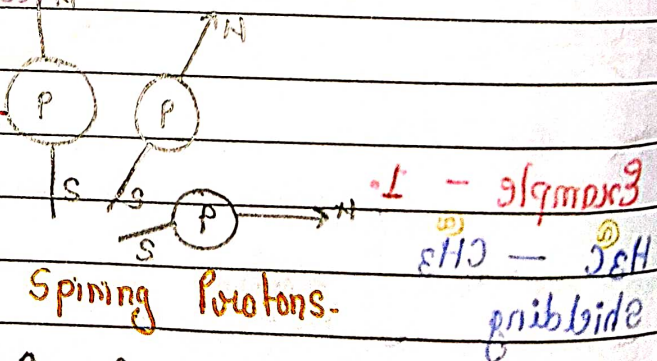 N
N
P
P
S
S
P
N
S
Spining Protons.
Example - 1.
H3C — CH3
(a) (a)
Shielding